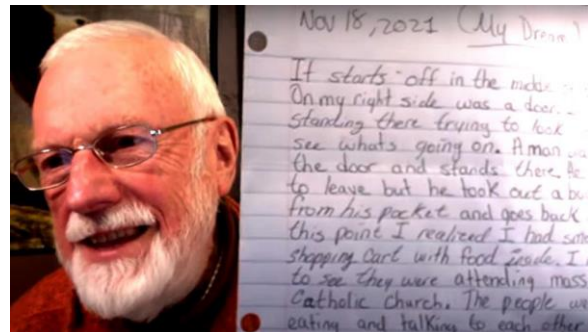 Nov 18, 2021 (My Dream)
It starts off in the
On my right side was a door
standing there trying to look
see whats going on. A man
the door and stands there. He
to leave but he took out a
from his pocket and goes back
this point I realized I had
shopping cart with food inside. I
to see they were attending mass
Catholic church. The people
eating and talking to each other